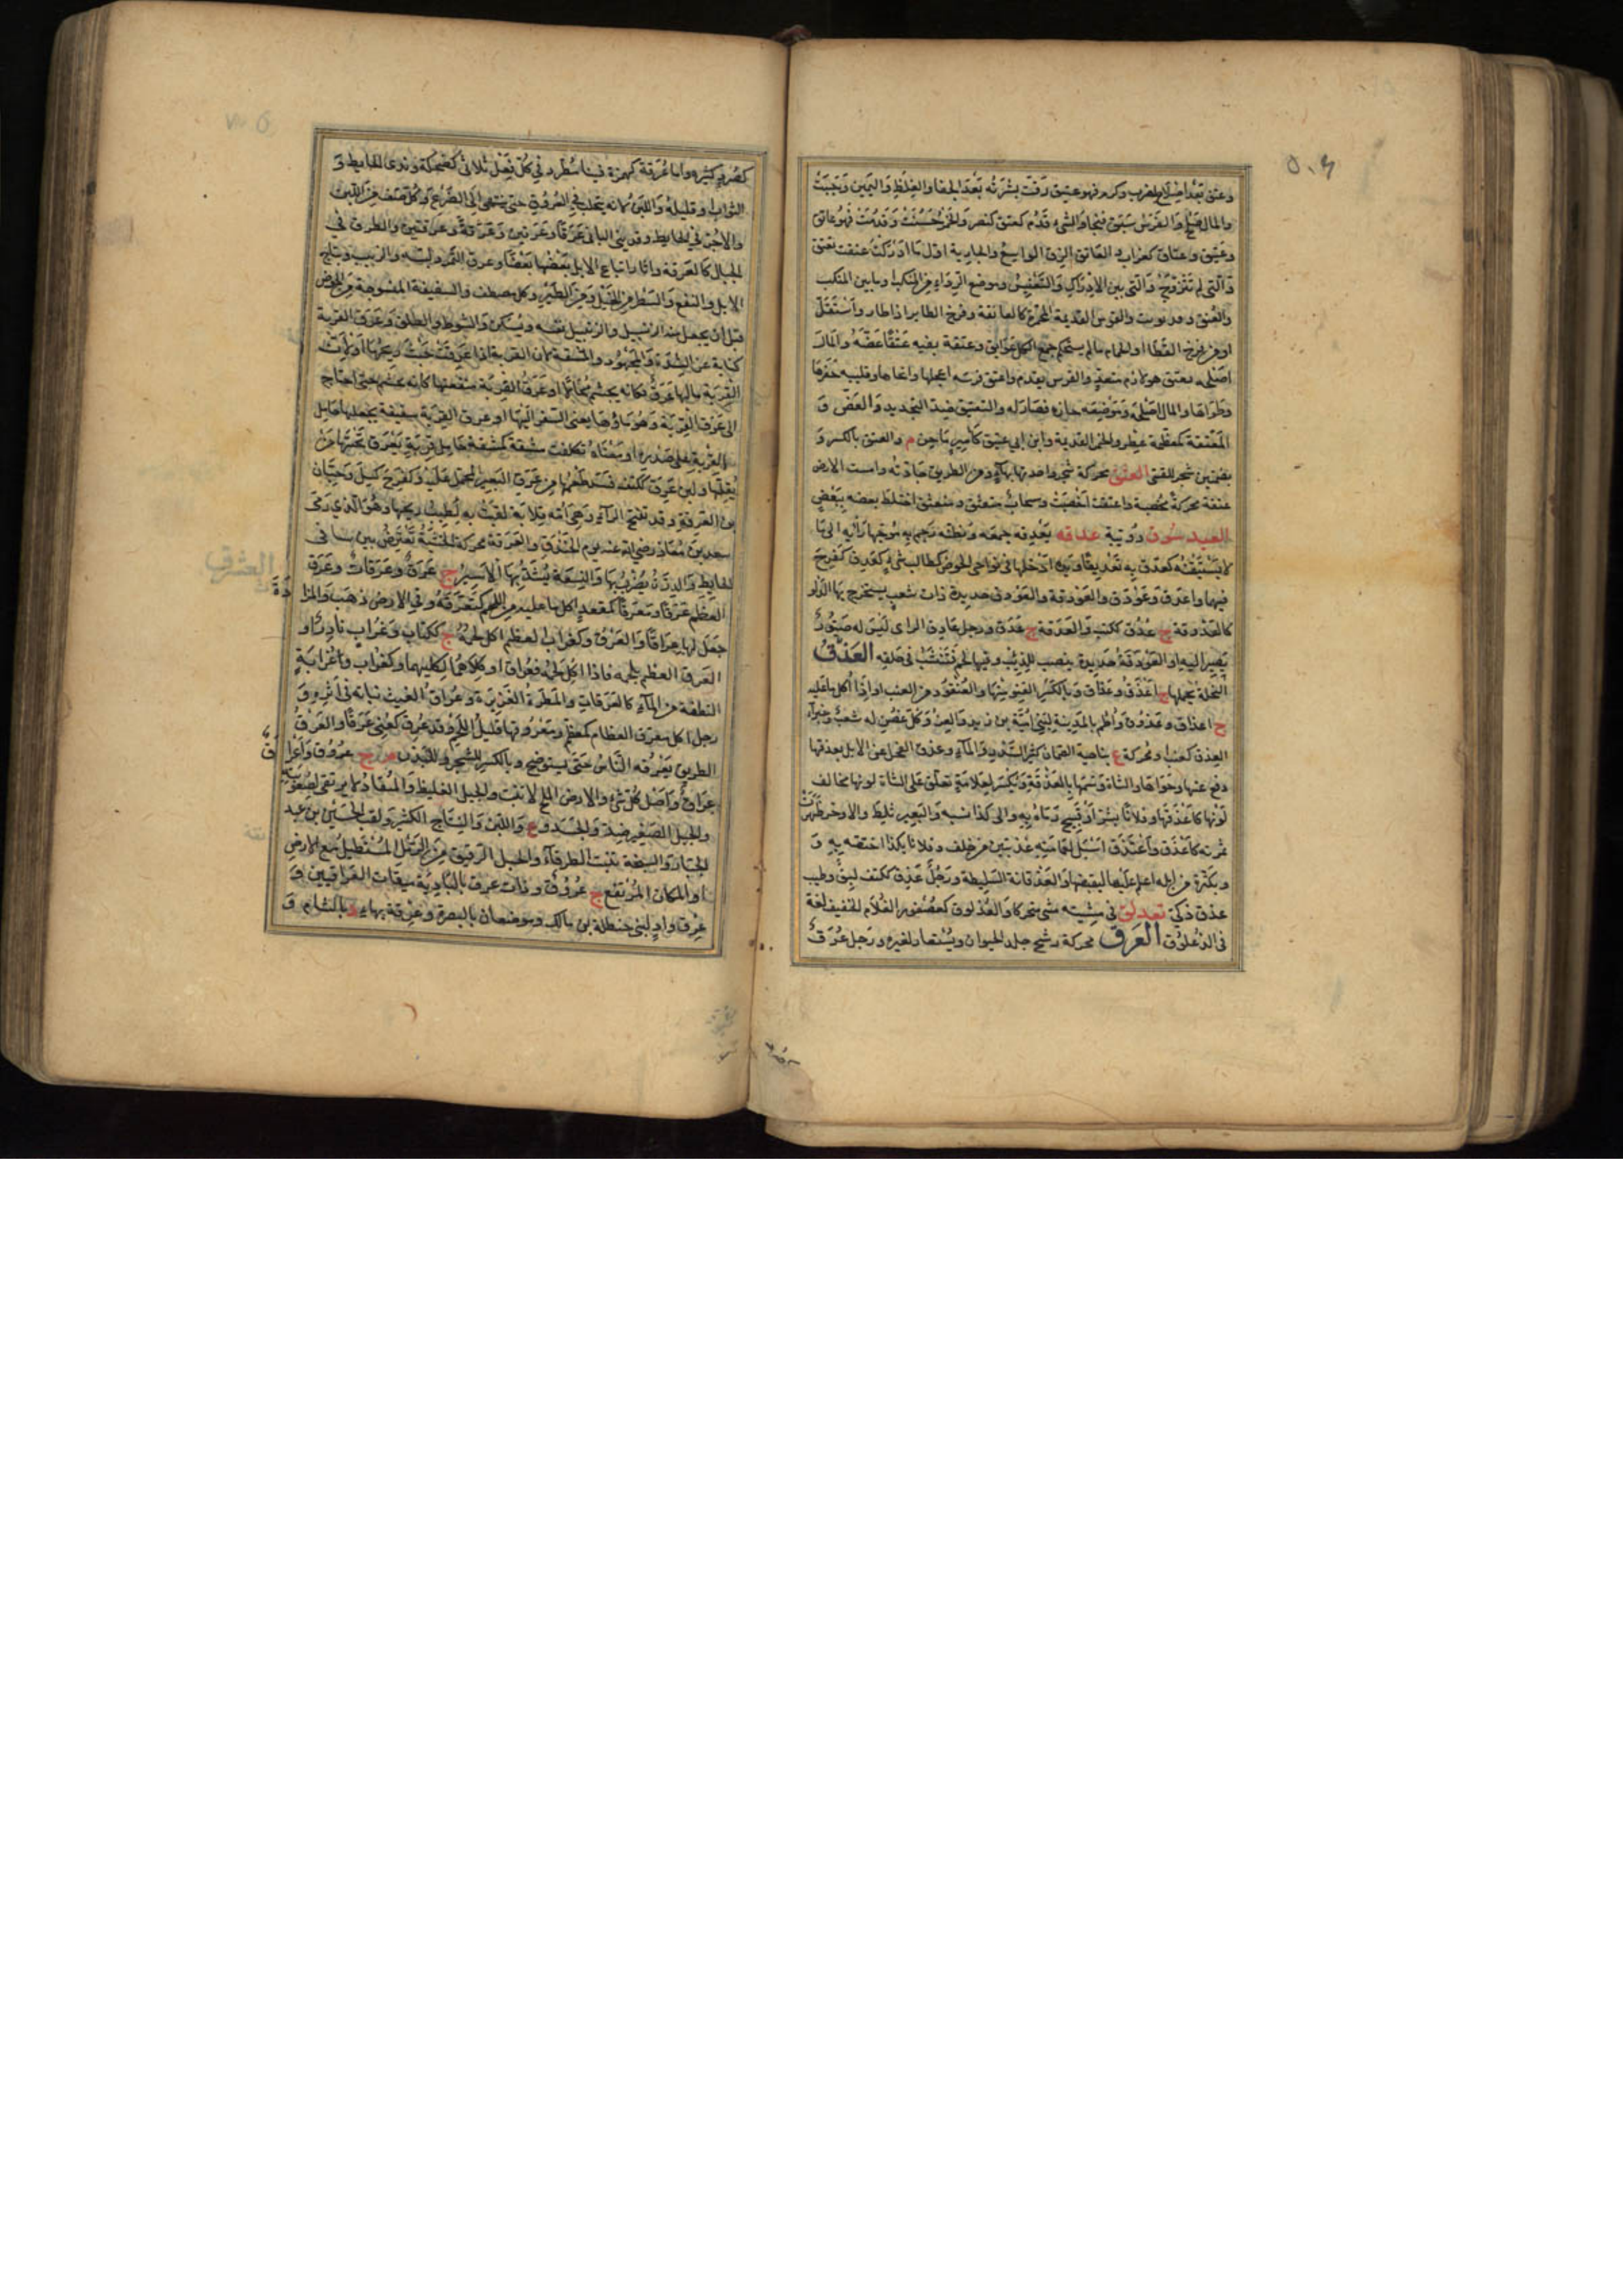 وعتق بعد اصلاح لضرب وكرم فهو عتيق رقت بشرته بعد الجفاء والغلظ واليمين وجبت
والمال صلح والفرس سبق فنجا والشيء قدم كعتق كنصر والخمر حسنت وقدمت فهو عاتق
وعتيق وعتاق كغراب والعاتق الزق الواسع والجارية اول ما ادركت عتقت تعتق
والتي لم تتزوج والتي بين الادراك والتعنيس وموضع الرداء من المنكب او ما بين المنكب
والعنق وقد يونث والقوس القديمة المحمرة كالعاتقة وفرخ الطاير اذا طار واستقل
او من فرخ القطا او الحمام ما لم يستحكم جمع الكل عواتق وعتقه بفيه عتقا عضه والمال
اصلحه فعتق هو لازم متعد والفرس تقدم واعتق فرسه اعجلها وانجاها وقليبه حفرها
وطواها والمال اصلحه وموضعه حازه فصار له والتعتيق ضد التجديد والعض و
المعتقة كمعظمة عطر والخمر القديمة وابن ابي عتيق كامير ماجن م والعتق بالكسر و
بضمتين شجر للقسي العثق محركة شجر واحدتها بهاء ومن الطريق جادته وامست الارض
عثقة محركة مخصبة واعثقت اخصبت وسحاب متعثق ومنعثق اختلط بعضه ببعض
العبدسوق دويبة عدقه يعدقه جمعه وبظنه رجم به موجها رأيه الى ما
لا يستيقنه كعدق به تعديقا ويده ادخلها في نواحي الحوض كطالب شيء كعدق كفرح
فيهما واعدق وعودق والعودقة والعودق حديدة ذات شعب يستخرج بها الدلو
كالعدوقة ج عدق ككتب والعدقة ج عدق ورجل عادق الراي ليس له صيور
يصير اليه او العودقة حديدة ينصب للذئب وفيها لحم فتنشب في حلقه العذق
النخلة بحملها ج اعذق وعذاق وبالكسر القنو منها والعنقود من العنب او اذا اكل ما عليه
ج اعذاق وعذوق واطم بالمدينة لبني امية بن زيد والعز وكل غصن له شعب وخبراء
العذق كعنب ومحركة ع بناصية الصمان كثير السدر والماء وعذق الفحل عن الابل يعذقها
دفع عنها وحواها والشاة وسمها بالعذقة وتكسر لعلامة تعلق على الشاة لونها مخالف
لونها كاعذقها وفلانا بشر او قبيح رماه به والى كذا نسبه والبعير ثلط والاذخر ظهرت
ثمرته كاعذق واعتذق اسبل لعمامته عذبتين من خلف وفلانا بكذا اختصه به و
وبكرة من ابله اعلم عليها ليقبضها والعذقانة السليطة ورجل عذق ككتف لبق وطيب
عذق ذكي تعذلق في مشيته مشى متحركا والعذلوق كعصفور الغلام الخفيف لغة
في الذعلوق العرق محركة رشح جلد الحيوان ويستعار لغيره ورجل عرق
كصرد كثيره واما عرقة كهمزة فبناء مطرد في كل فعل ثلاثي كضحكة وندى الحايط و
الثواب او قليله واللبن لانه يتحلب في العروق حتى ينتهي الى الضرع وكل صف من اللبن
والاجر في الحايط وقد بنى الباني عرقا وعرقين وعرقة وعرقتين والطرق في
الجبال كالعرقة واثار اتباع الابل بعضها بعضا وعرق التمر دبسه والزبيب ونتاج
الابل والنفع والسطر من الخيل ومن الطير وكل مصطف والسفيفة المنسوجة من الخوص
قبل ان يجعل منه الزنبيل والزنبيل نفسه ويسكن والشوط والطلق وعرق القربة
كناية عن الشدة والمجهود والمشقة لان القربة اذا عرقت خبث ريحها او لان
القربة ما لها عرق فكانه يجشم محالا او عرق القربة منقعتها كانه يجشم حتى احتاج
الى عرق القربة وهو ماؤها يعني السفر اليها او عرق القربة سفيفة يجعلها حامل
القربة على صدره او معناه تكلفت مشقة كمشقة حامل قربة يعرق تحتها من
ثقلها ولبن عرق ككتف فسد طعمه من عرق البعير المحمل عليه وكفرح كسل وحبان
بن العرقة وقد تفتح الراء وهي امه قلابة لقبت به لطيب ريحها وهو الذي رمى
سعد بن معاذ رضي الله عنه يوم الخندق والعرقة محركة الخشبة تعترض بين سافي
الحايط والدرة يضرب بها والنسعة يشد بها الاسير ج عرق وعرقات وعرق
العظم عرقا ومعرقا كمقعد اكل ما عليه من اللحم كتعرقه وفي الارض ذهب والمزادة
جعل لها عراقا والعرق وكغراب العظم اكل لحمه ج ككتاب وغراب نادر او
العرق العظم بلحمه فاذا اكل لحمه فعراق او كلاهما لكليهما وكغراب وغرابة
النطفة من الماء كالعرقات والمطرة الغزيرة وعراق الغيث نباته في اثره و
رجل اكل معرق العظام كمعظم ومعروقها قليل اللحم وقد عرق كعني عرقا والعرق
الطريق يعرقه الناس حتى يستوضح وبالكسر للشجر وللبدن م ج عروق واعراق
عراق واصل كل شيء والارض الملح لا تنبت والجبل الغليظ والمنقاد لا يرتقى لصعوبته
والجبل الصغير ضد والجسد وع واللبن والنتاج الكثير ولقب الحسين بن عبد
الجبار والسبخة تنبت الطرفاء والحبل الرقيق من الرمل المستطيل مع الارض
او المكان المرتفع ج عروق وذات عرق بالبادية ميقات العراقيين و
عرق واد لبني حنظلة بن مالك وموضعان بالبصرة وعرقة بهاء د بالشام و